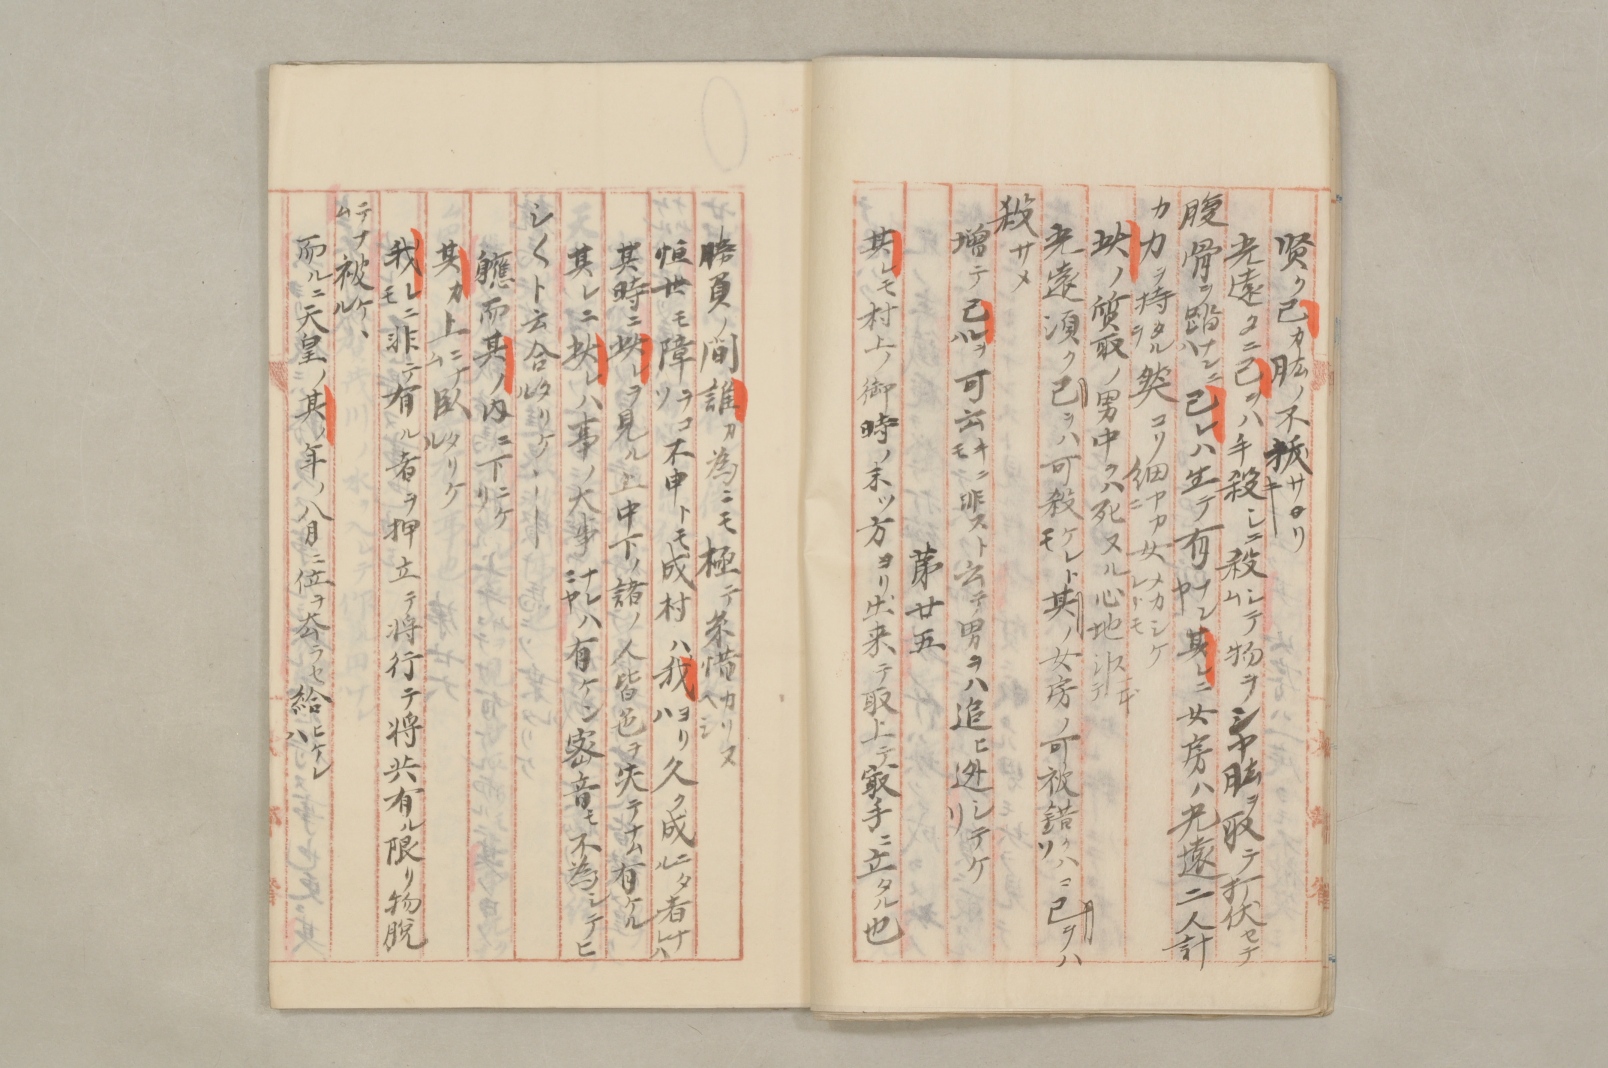 賢ク己カ肱ノ不抜サヨリ
光遠タニ己ヲハ手殺シニ殺シテム物ヲシヤ肱ヲ取テ打伏セテ
腹骨ヲ踏ハナンニ己レハ生テ有ナンヤ其レニ女房ハ光遠二人計
カ力ヲ持タルヲ然コソ細ヤカニ女メカシケレトモ
此ノ質取ノ男中々ハ死ヌル心地シテ
光遠須ク己ヲハ可殺ケレトモ其ノ女房ノ可被錯クハコソ己ヲハ
殺サメ
増テ己レヲ可云キニモ非スト云テ男ヲハ追ヒ逃シテケリ
第廿五
其レモ村上ノ御時ノ末ツ方ヨリ出来テ取上テ最手ニ立タル也
勝負ノ間誰カ為ニモ極テ糸惜カリヌヘシ
恒世モ障ラコソ不申トモ成村ハ我ヨリハ久ク成ニタル者ナレハ
其時ニ此レヲ見ル上中下ノ諸ノ人皆色ヲ失テナム有ケル
其レニ此レハ事ノ大事ナレハニヤ有ケン密音モ不為シテヒ
シくト云合タリケル
軈而其ノ内ニ下ニケリ
其カ上ニナム臥タリケル
我レニモ非テ有ル者ヲ押立テ将行テ将共有ル限リ物脱
テナム被ケル
而ルニ天皇ノ其ノ年ノ八月ニ位ヲ去ラセ給ヒケレハ